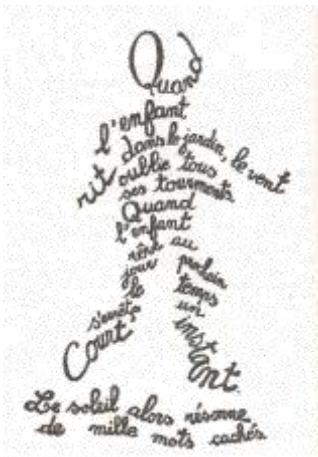 Quand
l'enfant
rit dans le jardin, le vent
oublie tous
ses tourments
Quand
l'enfant
rêve au
jour prochain
le temps
s'arrête un
Court instant.
Le soleil alors résonne
de mille mots cachés